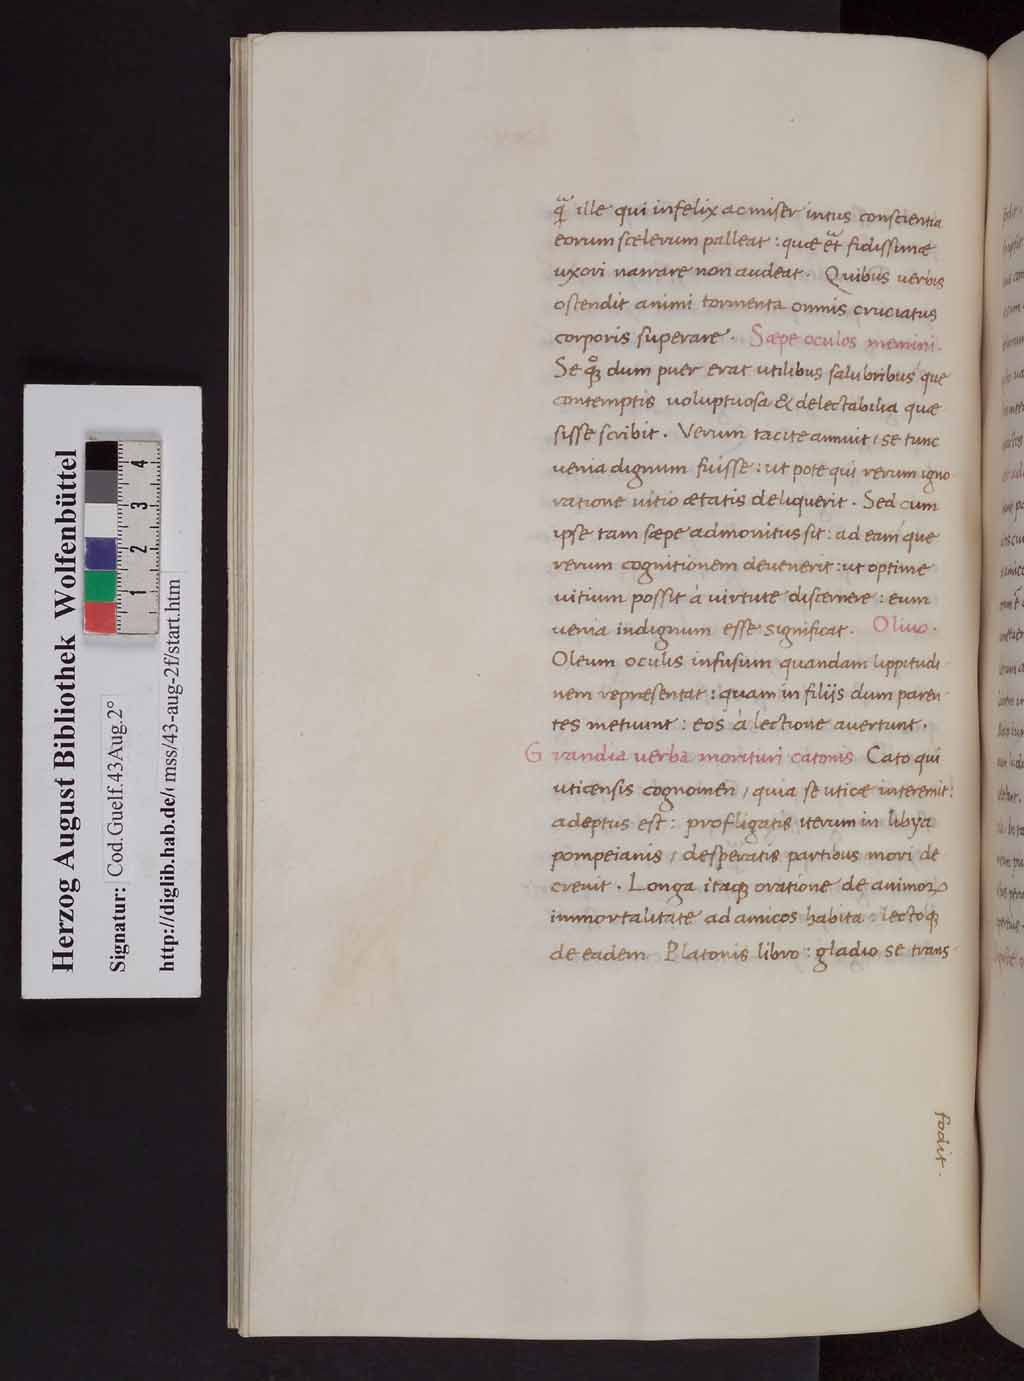 q̄ ille qui infelix ac miser intus conscientia
eorum scelerum palleat : quæ et fidissimæ
uxori narrare non audeat . Quibus uerbis
ostendit animi tormenta omnis cruciatus
corporis superare . Sæpe oculos memini .
Se qꝫ dum puer erat utilibus salubribus que
contemptis uoluptuosa & delectabilia quæ
sisse scribit . Verum tacite annuit , se tunc
uenia dignum fuisse : ut pote qui rerum igno
ratione uitio ætatis deliquerit . Sed cum
ipse tam sæpe admonitus sit : ad eam que
rerum cognitionem deuenerit : ut optime
uitium possit à uirtute discernere : eum
uenia indignum esse significat . Oliuo .
Oleum oculis infusum quandam lippitudi
nem repræsentat : quam in filijs dum paren
tes metuunt : eos à lectione auertunt .
Grandia uerba morituri catonis Cato qui
uticensis cognomen , quia se uticæ interemit :
adeptus est : profligatis iterum in libya
pompeianis , desperatis partibus mori de
creuit . Longa itaqꝫ oratione de animoꝝ
immortalitate ad amicos habita : lectoqꝫ
de eadem Platonis libro : gladio se trans
fodit .
Herzog August Bibliothek Wolfenbüttel
Signatur: Cod.Guelf.43Aug.2°
http://diglib.hab.de/ mss/43-aug-2f/start.htm
1 2 3 4